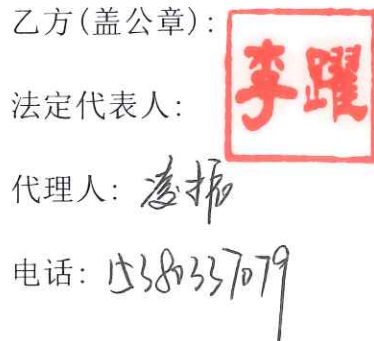 乙方(盖公章):
法定代表人: 李躍
代理人: 凌振
电话: 15380337079